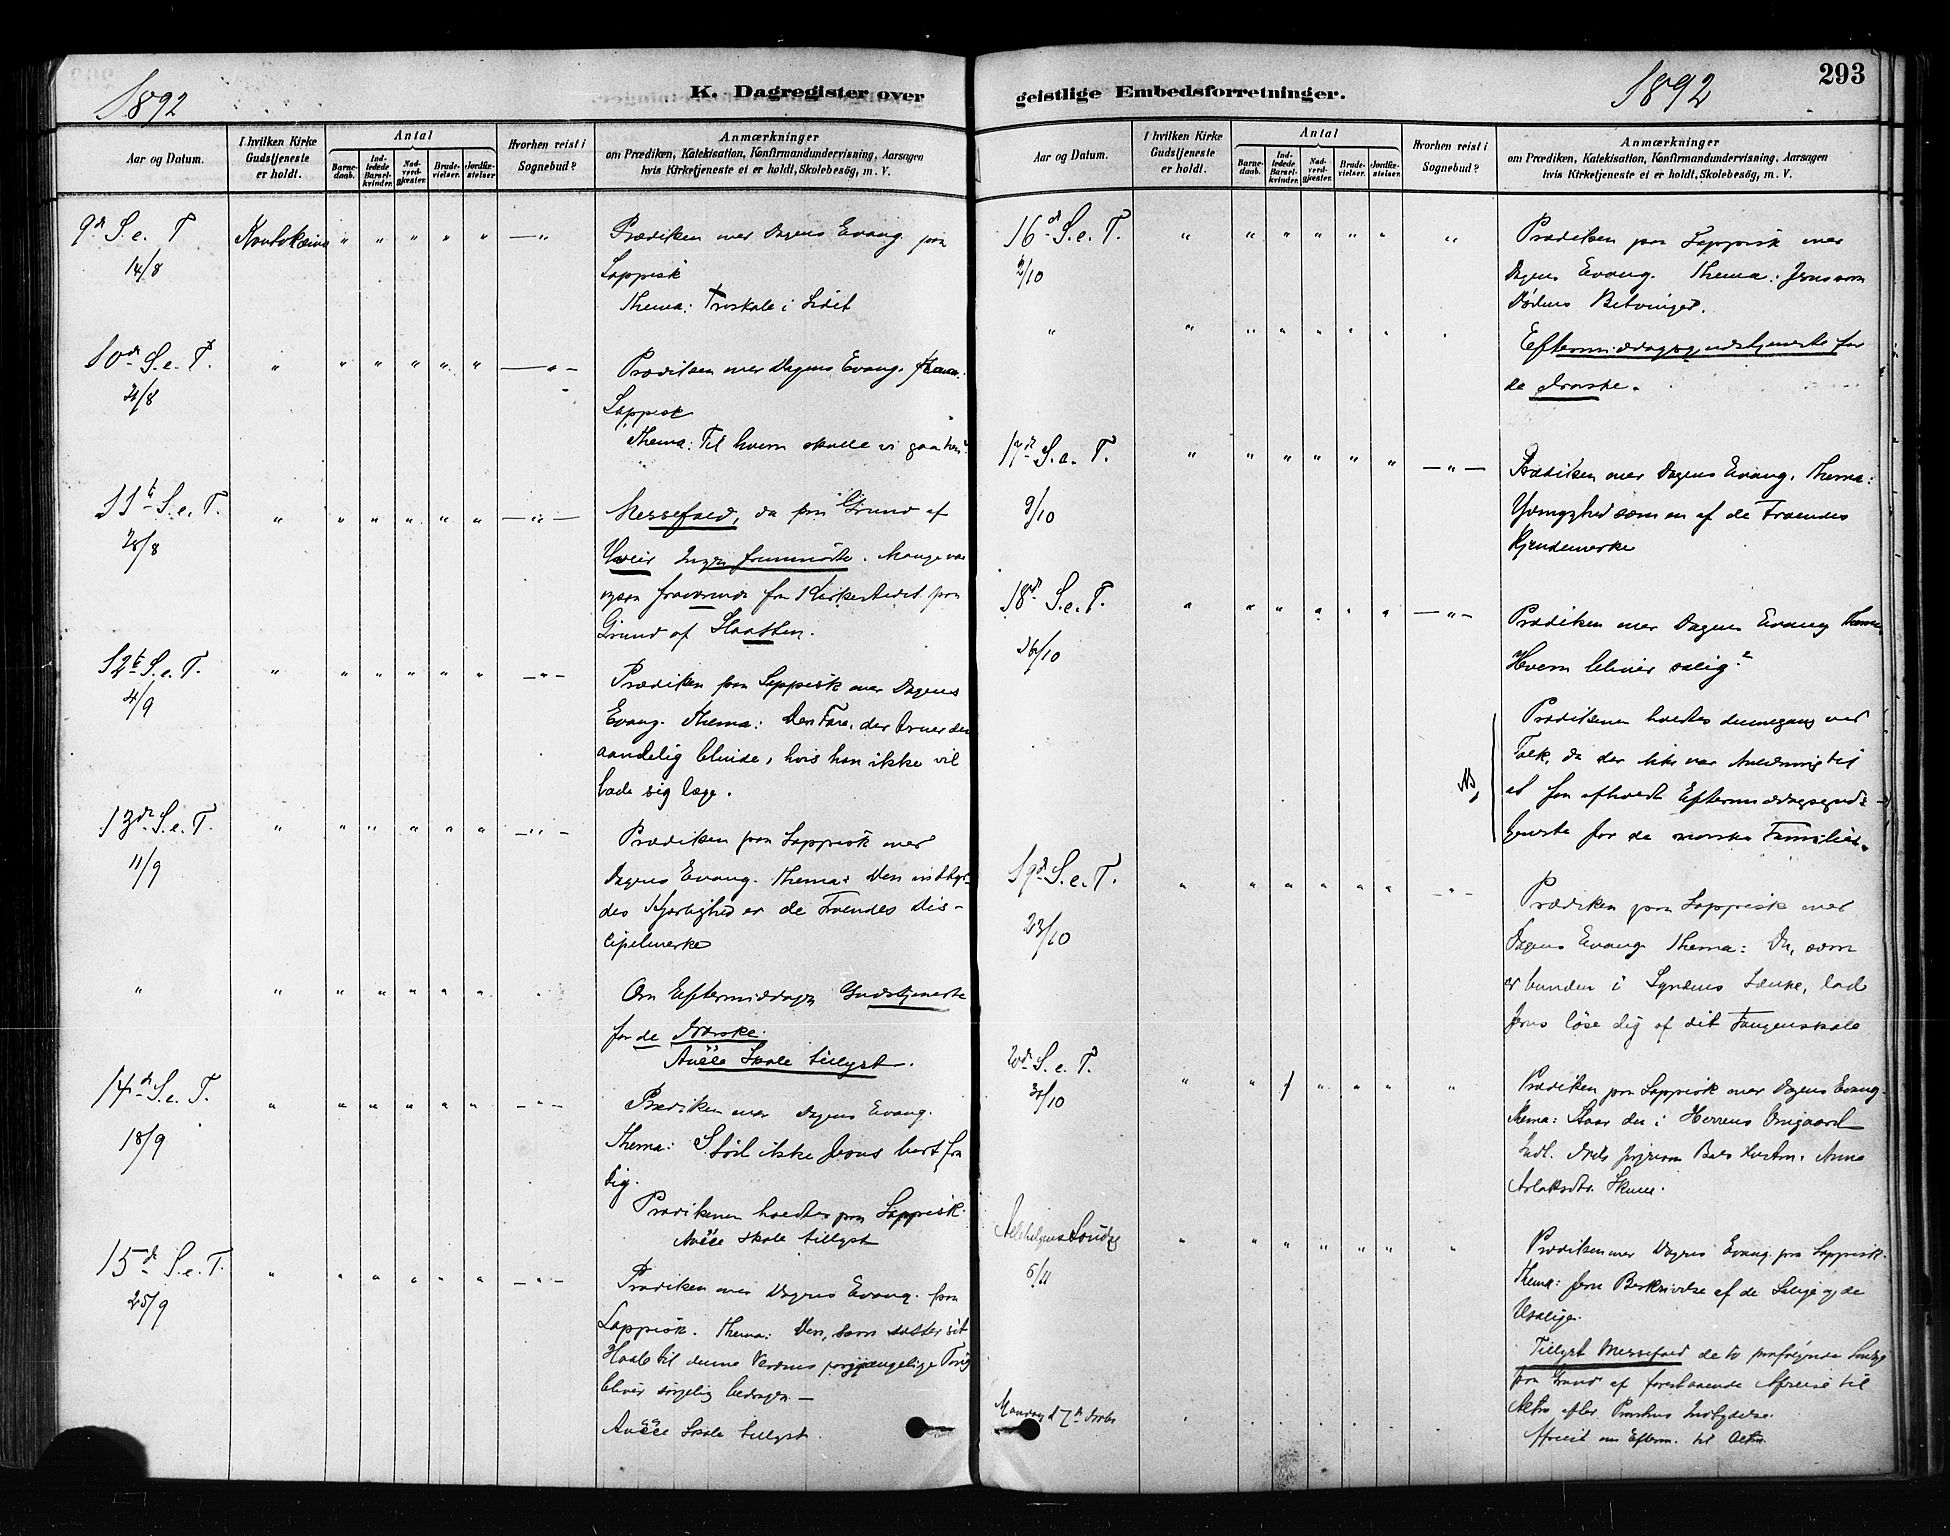 1892
K. Dagregister over
Aar og Datum.
I hvilken Kirke Gudstjeneste er holdt.
Antal
Barnedaab.
Indledede Barselkvinder.
Nadverdgjæster.
Brudevielser.
Jordfæstelser
Hvorhen reist i Sognebud?
Anmærkninger
om Prædiken, Katekisation, Konfirmandundervisning, Aarsagen
hvis Kirketjeneste ei er holdt, Skolebesøg, m. V.
9d S. e. T
14/8
Kautokeino
Prædiken over Dagens Evang. paa
Lappisk
Thema: Troskab i Lidet
10d S. e. T
21/8
Prædiken over Dagens Evang.
Lappisk
Thema: Til hvem skulle vi gaa hen?
11t S. e. T.
28/8
Messefald, da paa Grund af
Uveir Ingen fremmødte. Mange var
ogsaa fraværende fra Kirkestedet paa
Grund af Slaatten.
12t S. e. T.
4/9
Prædiken paa Lappisk over Dagens
Evang. Thema: Den Fare, der truer den
aandelig blinde, hvis han ikke vil
lade sig læge.
13d S. e. T.
11/9
Prædiken paa Lappisk over
Dagens Evang. Thema: Den indbyr-
des Kjærlighed er de Troendes Dis-
cipelmerke
Om Eftermiddagen Gudstjeneste
for de Norske.
Skole tillyst.
14d S. e. T.
18/9
Prædiken over Dagens Evang.
Thema: Stød ikke Jesus bort fra
dig.
Prædikenen holdtes paa Lappisk.
Skole tillyst
15d S. e. T.
25/9
Prædiken over Dagens Evang. paa
Lappisk. Thema: Den, som sætter sit
Haab til denne Verdens forgjængelige Ting
bliver sørgelig bedragen —
Skole tillyst.
geistlige Embedsforretninger.
1892
293
Aar og Datum.
I hvilken Kirke Gudstjeneste er holdt.
Antal
Barnedaab.
Indledede Barselkvinder.
Nadverdgjæster.
Brudevielser.
Jordfæstelser
Hvorhen reist i Sognebud?
Anmærkninger
om Prædiken, Katekisation, Konfirmandundervisning, Aarsagen
hvis Kirketjeneste ei er holdt, Skolebesøg, m. V.
16d S. e. T.
2/10
Prædiken paa Lappisk over
Dagens Evang. Thema: Jesus som
Dødens Betvinger.
Eftermiddagsgudstjeneste for
de Norske.
17d S. e. T.
9/10
Prædiken over Dagens Evang. Thema:
Ydmyghed som en af de Troendes
Kjendemerke
18d S. e. T.
16/10
Prædiken over Dagens Evang Thema:
Hvem bliver salig?
NB.
Prædikenen holdtes dennegang ved
Tolk, da der ikke var Anledning til
at faa afholdt Eftermiddagsguds-
tjeneste for de norske Familier.
19d S. e. T.
23/10
Prædiken paa Lappisk over
Dagens Evang Thema: Du, som
er bunden i Syndens Lænke, lad
Jesus løse dig af dit Fangenskab
20d S. e. T.
30/10
1
Prædiken paa Lappisk over Dagens Evang.
Thema: Staar du i Herrens Vingaard
Indl. Nils Hustru. Anna
Aslaksdtr.
Allehelgens Søndag
6/11
Prædiken over Dagens Evang. paa Lappisk.
Thema: Jesu Beskrivelse af de Salige og de
Usalige.
Tillyst Messefald de to paafølgende Søndage
paa Grund af forestaaende Afreise til
Alten efter Provstens Indbydelse.
Mandag d 7de Novbr
Afreist om Efterm. til Alten